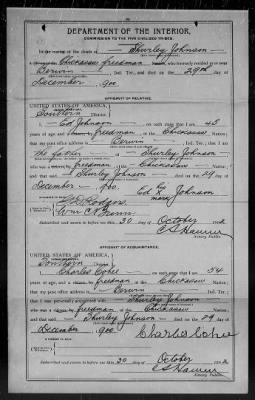 DEPARTMENT OF THE INTERIOR,
COMMISSION TO THE FIVE CIVILIZED TRIBES.
In the matter of the death of Shurley Johnson
a Chickasaw freedman who formerly resided at or near
Berwin, Ind. Ter., and died on the 29 day of
December, 1900.
AFFIDAVIT OF RELATIVE.
UNITED STATES OF AMERICA,
Southern District.
I, Ed Johnson, on oath state that I am 45
years of age and a freedman of the Chickasaw Nation;
that my post office address is Berwin, Ind. Ter.; that I am
the father of Shurley Johnson
who was a freedman of the Chickasaw Nation;
and that said Shurley Johnson died on the 29 day of
December, 1900.
Ed his mark Johnson
Subscribed and sworn to before me this 30 day of October
Notary Public.
AFFIDAVIT OF ACQUAINTANCE.
UNITED STATES OF AMERICA,
Southern District.
I, Charles Cohee, on oath state that I am 54
years of age, and a freedman of the Chickasaw Nation;
that my post office address is Berwin, Ind. Ter.;
that I was personally acquainted with Shurley Johnson
who was a freedman of the Chickasaw Nation;
and that said Shurley Johnson died on the 29 day of
December, 1900
Charles Cohee
Subscribed and sworn to before me this 30 day of October
Notary Public.